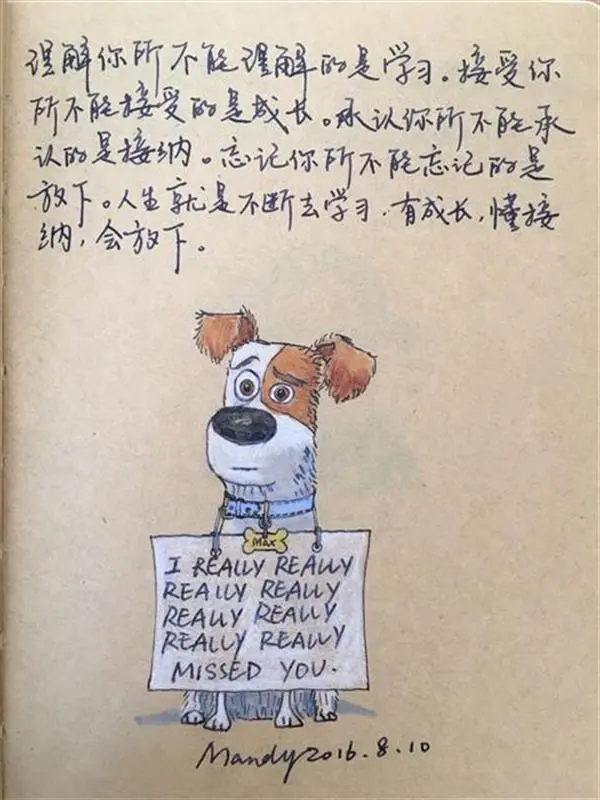 理解你所不能理解的是学习。接受你
所不能接受的是成长。承认你所不能承
认的是接纳。忘记你所不能忘记的是
放下。人生就是不断去学习,有成长,懂接
纳,会放下。
Max
I REALLY REALLY
REALLY REALLY
REALLY REALLY
REALLY REALLY
MISSED YOU.
Mandy 2016.8.10